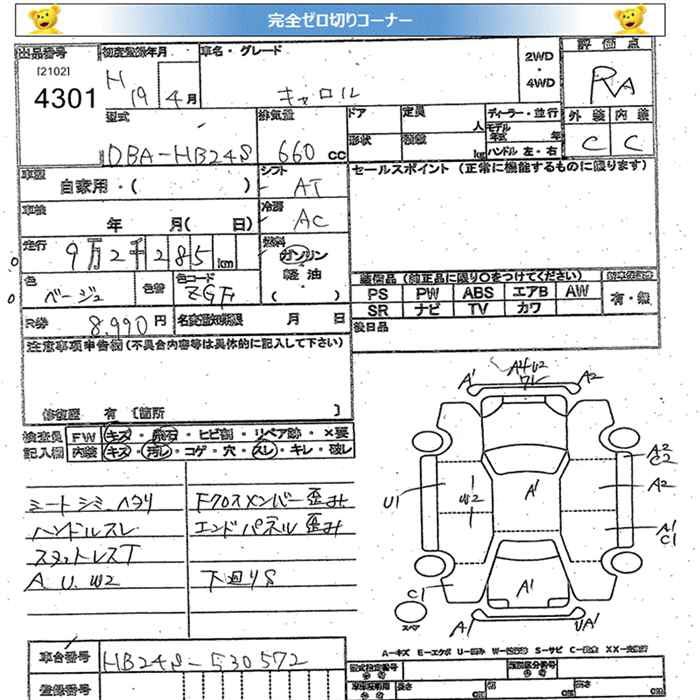 完全ゼロ切りコーナー
出品番号 初度登録年月 車名・グレード 2WD ・ 4WD 評価点
[2102]
4301 H 19年 4月 キャロル RA
型式 排気量 ドア 定員 人 ディーラー・並行 外装 内装
モデル年式 年
DBA-HB24S 660cc 形状 積載 kg ハンドル 左・右 C C
車歴 シフト セールスポイント (正常に機能するものに限ります)
自家用・( ) AT
車検 冷房
年 月( 日) AC
走行 9万2千285km 燃料 ガソリン
軽油
( )
色 色替 色コード 装備品 (純正品に限り○をつけてください)
ベージュ ZGF PS PW ABS エアB AW 有・無
SR ナビ TV カワ
R券 8,990円 名変通知期限 月 日 後日品
注意事項申告欄(不具合内容等は具体的に記入して下さい)
修復歴 有 [箇所 ]
検査員 FW キズ・飛石・ヒビ割・リペア跡・×要
記入欄 内装 キズ・汚レ・コゲ・穴・スレ・キレ・破レ
シートシミ、ヘタリ Fクロスメンバー歪み
ハンドルスレ エンドパネル歪み
スタットレスT
A U、W2 下廻りS
A1 A4 U2 A2
ワレ
A2
C2
U1 W2 A1 A2
A1
C1
C1 A1
スペア A1 UA1
A-キズ E-エクボ U-凹み W-波 S-サビ C-腐食 XX-交換済
車台番号 HB24S-530572
登録番号
型式指定番号 類別区分番号
長さ cm 幅 cm 高さ cm